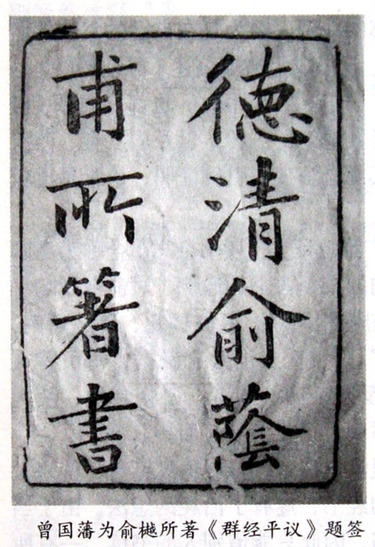 德清俞蔭
甫所箸書
曾国藩为俞樾所著《群经平议》题签